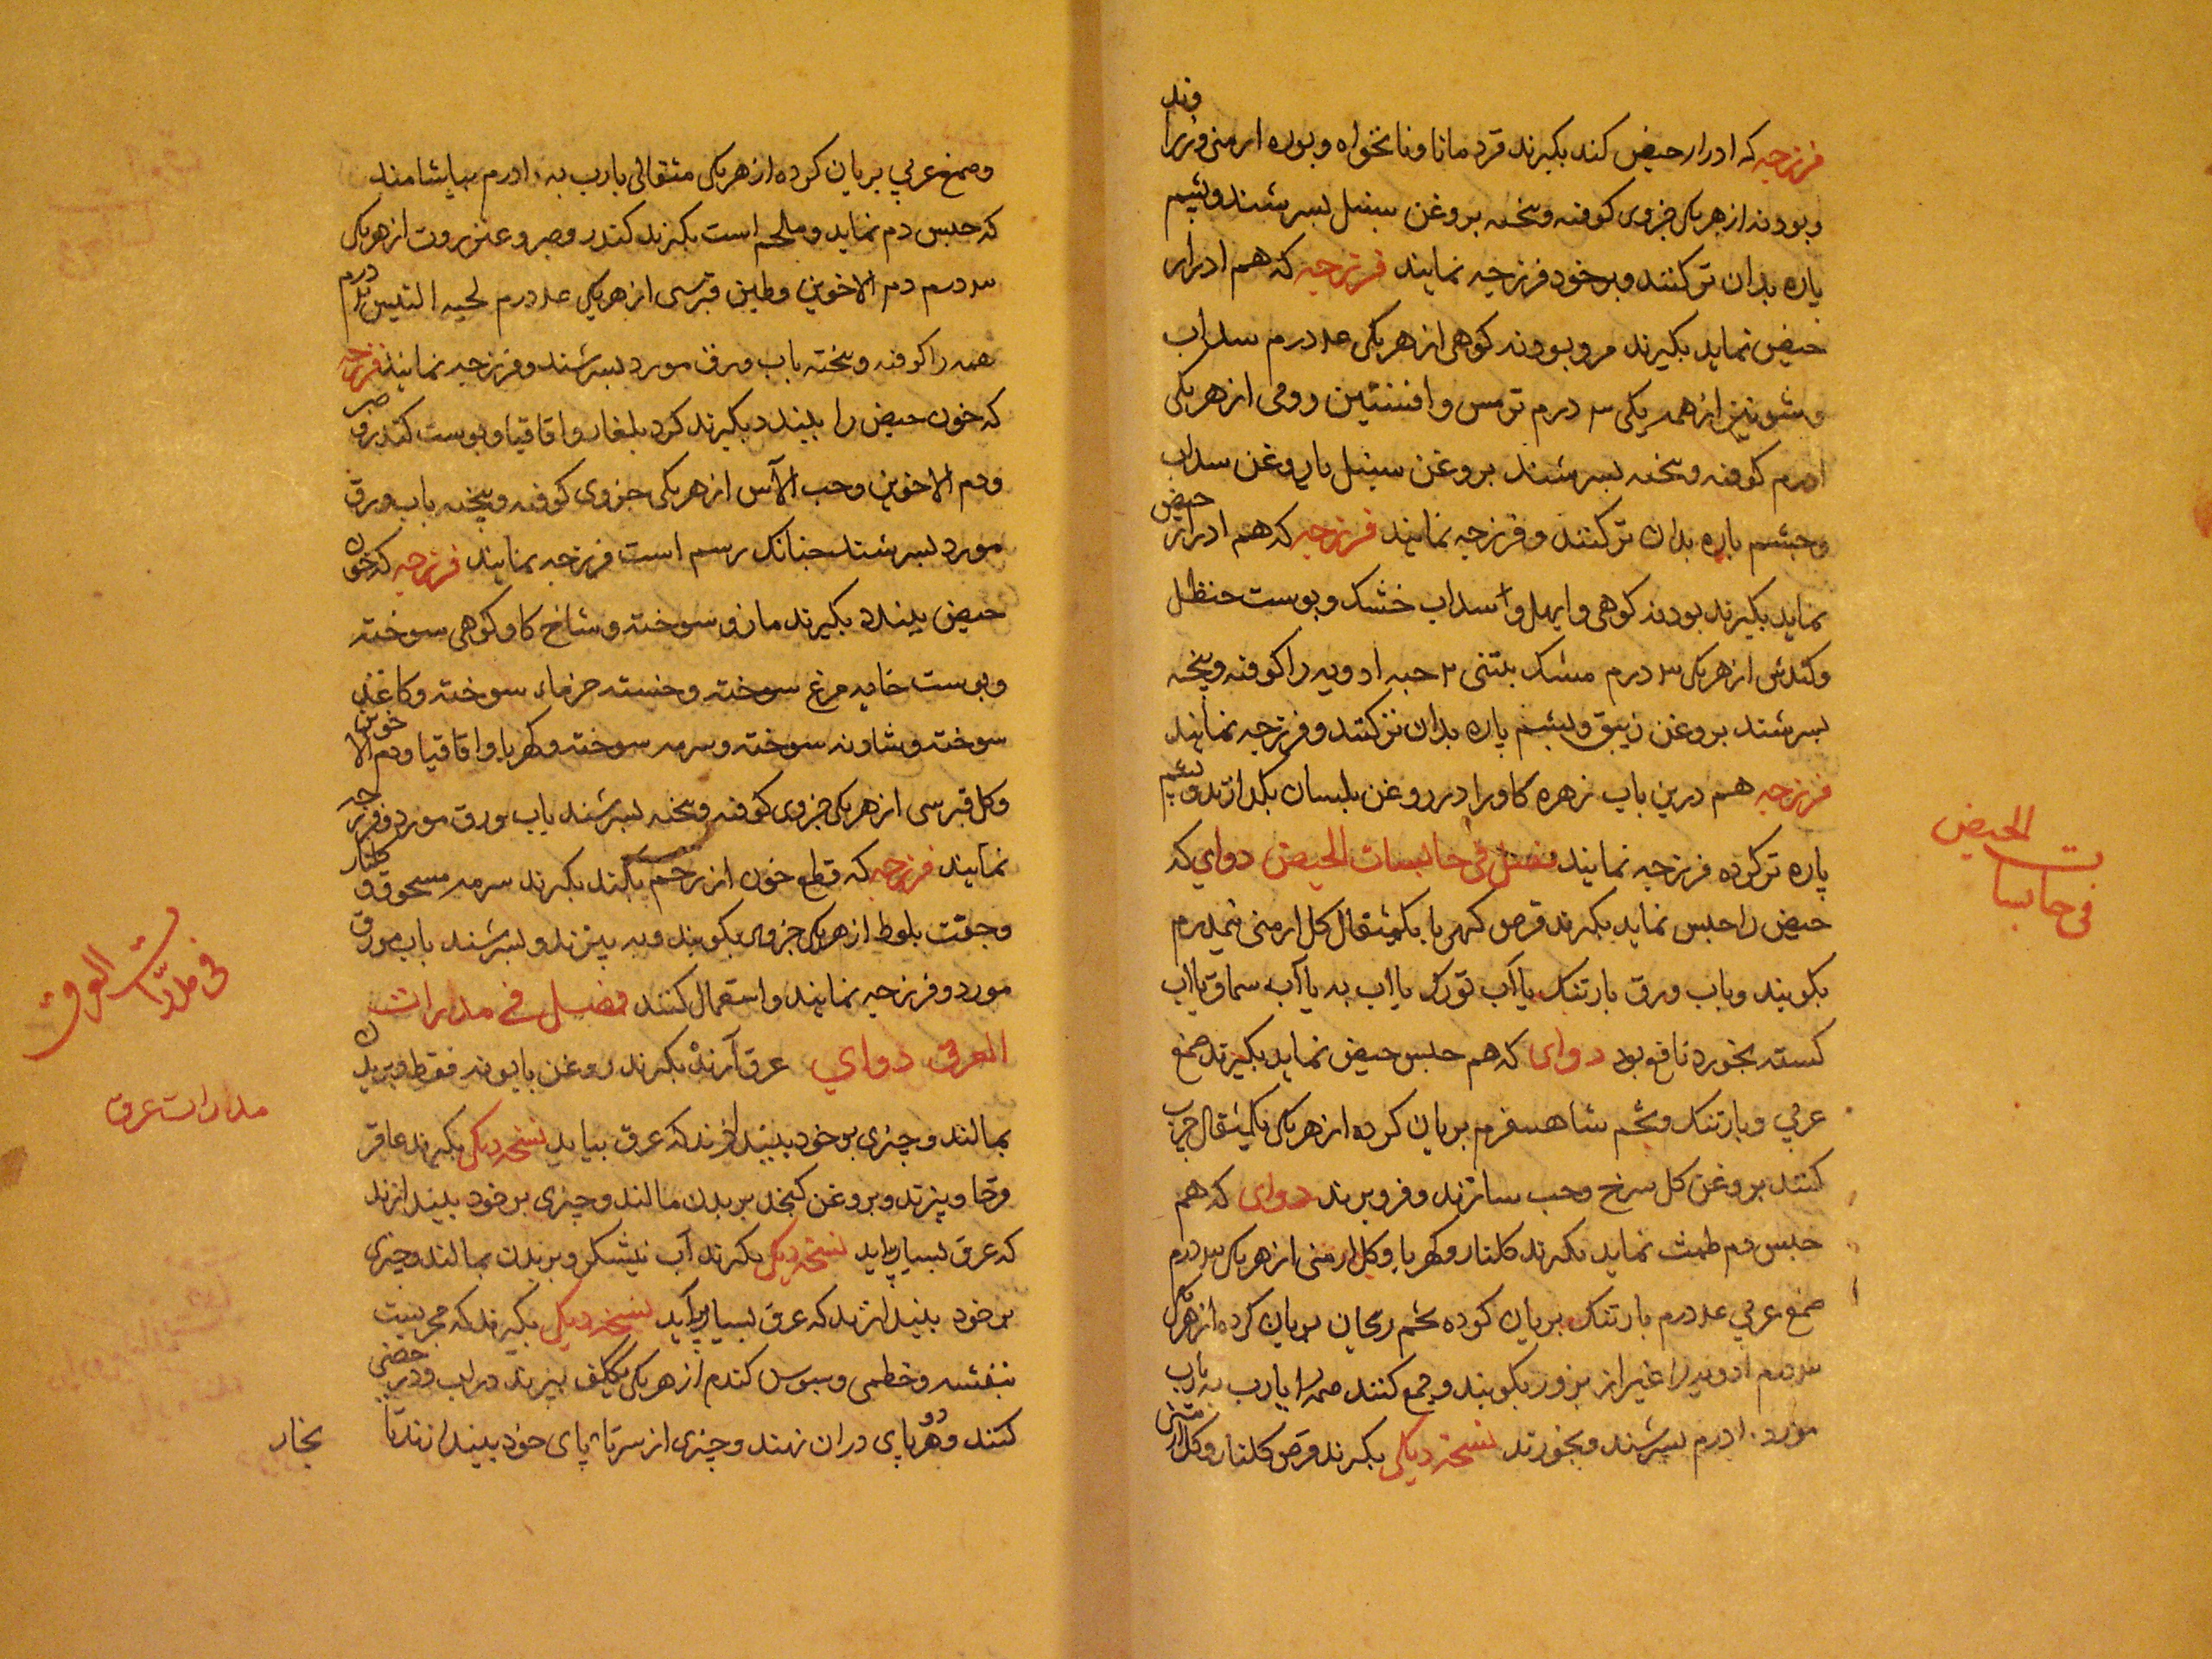 فرزجه که ادرار حیض کند بکیرند قردمانا و نانخواه و بوره ارمنی و زراوند
و بودنه از هریکی جزوی کوفته و بیخته بروغن سنبل بسرشند و بشم
پاره بدان تر کنند و بر خود فرزجه نمایند فرزجه که هم ادرار
حیض نماید بکیرند مر و بودنه کوهی از هر یکی عددرم سداب
و شونیز از هر یکی ۳ درم ترمس و افسنتین رومی از هر یکی
ادرم کوفته و بیخته بسرشند بروغن سنبل یا روغن سداب
و بشم پاره بدان تر کنند و فرزجه نمایند فرزجه که هم ادرار حیض
نماید بکیرند بودنه کوهی و ابهل و سداب خشک و بوست حنظل
و کندش از هر یکی ۳ درم مشک تبتی ۲ حبه ادویه را کوفته و بیخته
بسرشند بروغن زیبق و بشم پاره بدان تر کنند و فرزجه نمایند
فرزجه هم درین باب زهره کاو را در روغن بلسان بکدازند و بشم
پاره تر کرده فرزجه نمایند فصل فی حابسات الحیض دوای که
حیض را حبس نماید بکیرند قرص کهربا یکمثقال کل ارمنی نیمدرم
بکوبند و باب ورق بارتنک یا آب تورک یا اب به یا آب سماق یا اب
کسته بخورد نافع بود دوای که هم حبس حیض نماید بکیرند صمغ
عربی و بارتنک و تخم شاهسفرم بریان کرده از هر یکی یکمثقال چرب
کنند بروغن کل سرخ و حب سازند و فرو برند دوای که هم
حبس دم طمث نماید بکیرند کلنار و کهربا و کل ارمنی از هر یکی ۳ درم
صمغ عربی عددرم بارتنک بریان کرده تخم ریحان بریان کرده از هر یکی
۳ درم ادویه را غیر از بزور بکوبند و جمع کنند همه را یا رب به یا رب
مورد ۱۰ درم بسرشند و بخورند نسخه دیکر بکیرند قرص کلنار و کل ارمنی
الحیض
فی حابسات
و صمغ عربی بریان کرده از هر یکی مثقالی یا رب به ۱۰ درم بیاشامند
که حبس دم نماید و ملحم است بکیرند کندر و صبر و عنزروت از هر یکی
۳ درم دم الاخوین و طین قبرسی از هر یکی عددرم لحیه التیس ۳ درم
همه را کوفته و بیخته باب ورق مورد بسرشند و فرزجه نمایند فرزجه
که خون حیض را ببندد بکیرند کرد بلغار و اقاقیا و بوست کندر و صبر
و دم الاخوین و حب الآس از هر یکی جزوی کوفته و بیخته باب ورق
مورد بسرشند جنانک رسم است فرزجه نمایند فرزجه که خون
حیض ببندد بکیرند مازو سوخته و شاخ کاو کوهی سوخته
و بوست خایه مرغ سوخته و خسته خرما سوخته و کاغذ
سوخته و شاونه سوخته و سرمه سوخته و کهربا و اقاقیا و دم الاخوین
و کل قبرسی از هر یکی جزوی کوفته و بیخته بسرشند باب ورق مورد و فرزجه
نمایند فرزجه که قطع خون از رحم بکند بکیرند سرمه مسحوق و کلنار
و جفت بلوط از هر یکی جزوی بکوبند و به بیزند و بسرشند باب ورق
مورد و فرزجه نمایند و استعمال کنند فصل فی مدرات
العرق دوای عرق آرنده بکیرند روغن بابونه فقط و بر بدن
بمالند و چیزی بر خود بیندازند که عرق بیاید نسخه دیکر بکیرند عاقر
قرحا و بپزند و بروغن کنجد بر بدن مالند و چیزی بر خود بیندازند
که عرق بسیار براید نسخه دیکر بکیرند آب نیشکر و بر بدن بمالند و چیزی
بر خود بیندازند که عرق بسیار برآید نسخه دیکر بکیرند که مجربست
بنفشه و خطمی و سبوس کندم از هر یکی یککف بپزند در اب و در حوضی
کنند و هر دو پای دران نهند و چیزی از سر تا پای خود بیندازند تا
بخار
فی مدرات العرق
مدرات عرق